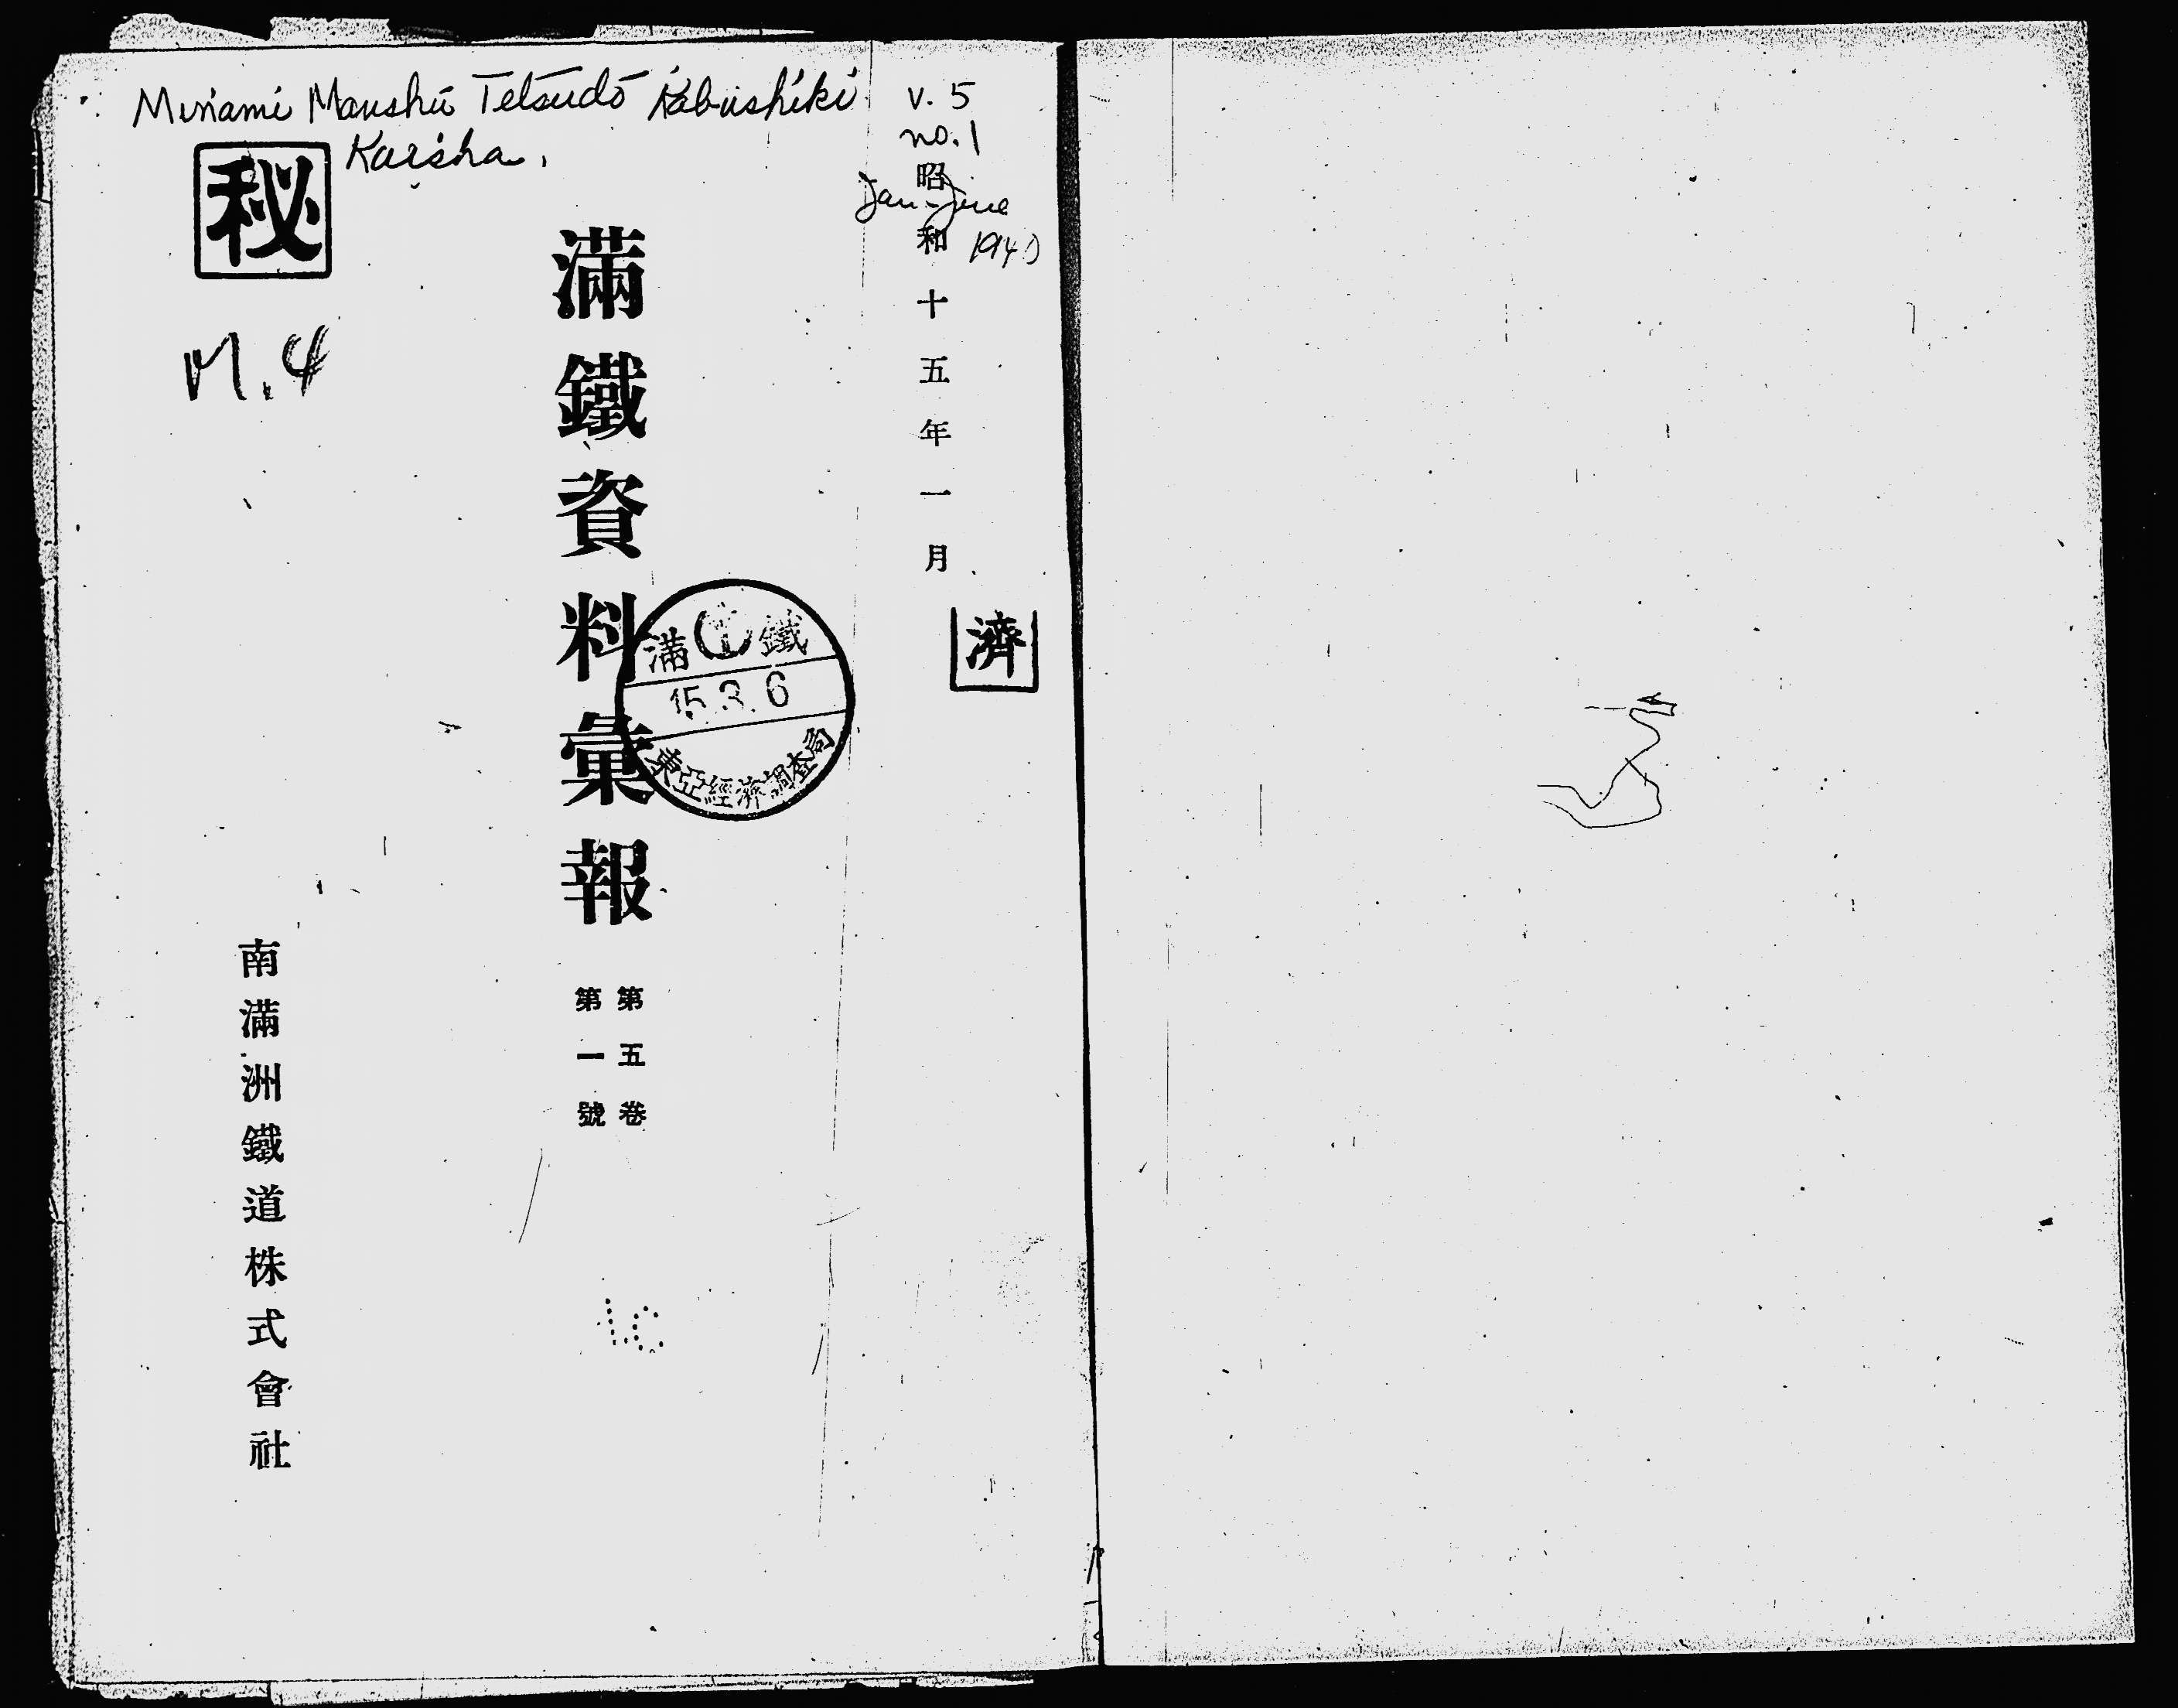 Minami Manshū Tetsudō Kabushiki
Kaisha.
v. 5
no. 1
Jan-June
1940
昭和十五年一月
濟
秘
M. 4
滿鐵資料彙報
第五卷
第一號
滿鐵
15.3.6
東亞經濟調査局
南滿洲鐵道株式會社